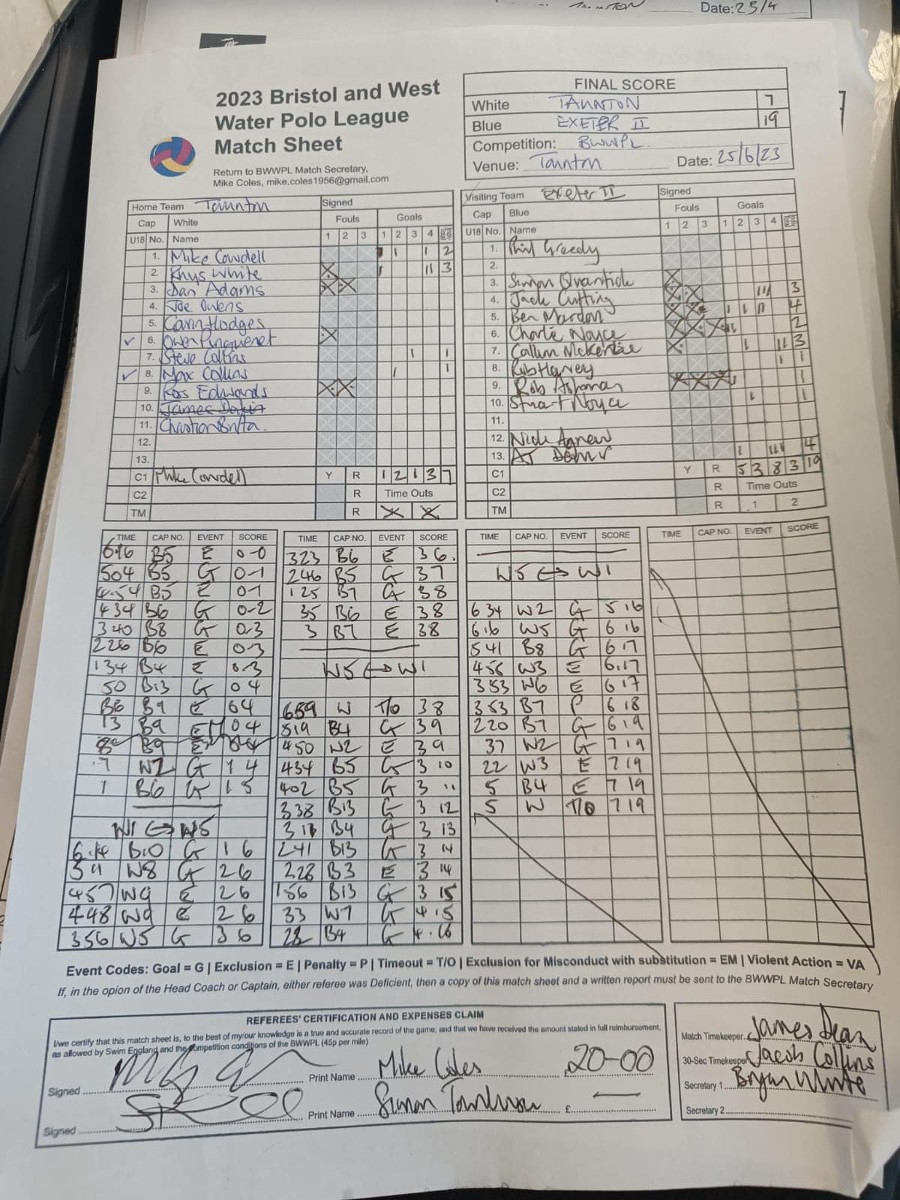 TAUNTON
Date: 25/4
2023 Bristol and West
Water Polo League
Match Sheet
Return to BWWPL Match Secretary,
Mike Coles, mike.coles1956@gmail.com
FINAL SCORE
White TAUNTON 7
Blue EXETER II 19
Competition: BWWPL
Venue: Taunton Date: 25/6/23
Home Team Taunton Signed
Cap White Fouls Goals
U18 No. Name 1 2 3 1 2 3 4
1. Mike Cowdell 1 1 2
2. Rhys White X 1 11 3
3. Dan Adams X X
4. Joe Owens
5. Gavin Hodges
✓ 6. Owen Pinguenet X
7. Steve Collins 1 1
✓ 8. Max Collins 1 1
9. Kas Edwards X X
10. James Dakin
11. Christian Brita.
12.
13.
C1 Mike Cowdell Y R 1 2 1 3 7
C2 R Time Outs
TM R X X
Visiting Team Exeter II Signed
Cap Blue Fouls Goals
U18 No. Name 1 2 3 1 2 3 4
1. Phil Greedy
2.
3. Simon Quantick X
4. Jack Cutting X X 111 3
5. Ben Mardon X X 1 1 11 4
6. Charlie Noyce X X X 11 2
7. Callum McKenzie X 1 11 3
8. Rob Harvey 1 1
9. Rob Ashman X X X 1
10. Stuart Noyce 1 1
11.
12. Nick Agnew
13. AJ 1 111 4
C1 Y R 5 3 8 3 19
C2 R Time Outs
TM R 1 2
TIME CAP NO. EVENT SCORE
6.16 B5 E 0-0
504 B5 G 0-1
4.54 B5 E 0-1
434 B6 G 0-2
340 B8 G 0-3
226 B6 E 0-3
134 B4 E 0-3
50 B13 G 0 4
B9 E 04
13 B9 EM 04
B9 E 0-4
.7 W2 G 1 4
1 B6 G 1 5
W1 ↔ W5
6.14 B10 G 1 6
511 W8 G 2 6
457 W9 E 2 6
448 W9 E 2 6
356 W5 G 3 6
TIME CAP NO. EVENT SCORE
323 B6 E 3 6.
246 B5 G 37
125 B7 G 38
35 B6 E 38
3 B7 E 38
W5 ↔ W1
659 W T/O 3 8
519 B4 G 39
450 W2 E 39
434 B5 G 3 10
402 B5 G 3 11
338 B13 G 3 12
311 B4 G 3 13
241 B13 G 3 14
228 B3 E 3 14
156 B13 G 3 15
33 W7 G 4.15
22 B4 G 4.16
TIME CAP NO. EVENT SCORE
W5 ↔ W1
634 W2 G 5 16
6.16 W5 G 6 16
541 B8 G 6 17
456 W3 E 6.17
353 W6 E 6 17
353 B7 P 6 18
220 B7 G 6 19
37 W2 G 7 19
22 W3 E 7 19
5 B4 E 7 19
5 W T/O 7 19
TIME CAP NO. EVENT SCORE
Event Codes: Goal = G | Exclusion = E | Penalty = P | Timeout = T/O | Exclusion for Misconduct with substitution = EM | Violent Action = VA
If, in the opion of the Head Coach or Captain, either referee was Deficient, then a copy of this match sheet and a written report must be sent to the BWWPL Match Secretary
REFEREES' CERTIFICATION AND EXPENSES CLAIM
I/we certify that this match sheet is, to the best of my/our knowledge is a true and accurate record of the game, and that we have received the amount stated in full reimbursement,
as allowed by Swim England and the competition conditions of the BWWPL (45p per mile)
Signed Print Name Mike Coles 20-00
Signed Print Name Simon £ —
Match Timekeeper James Dean
30-Sec Timekeeper Jacob Collins
Secretary 1 Bryan White
Secretary 2